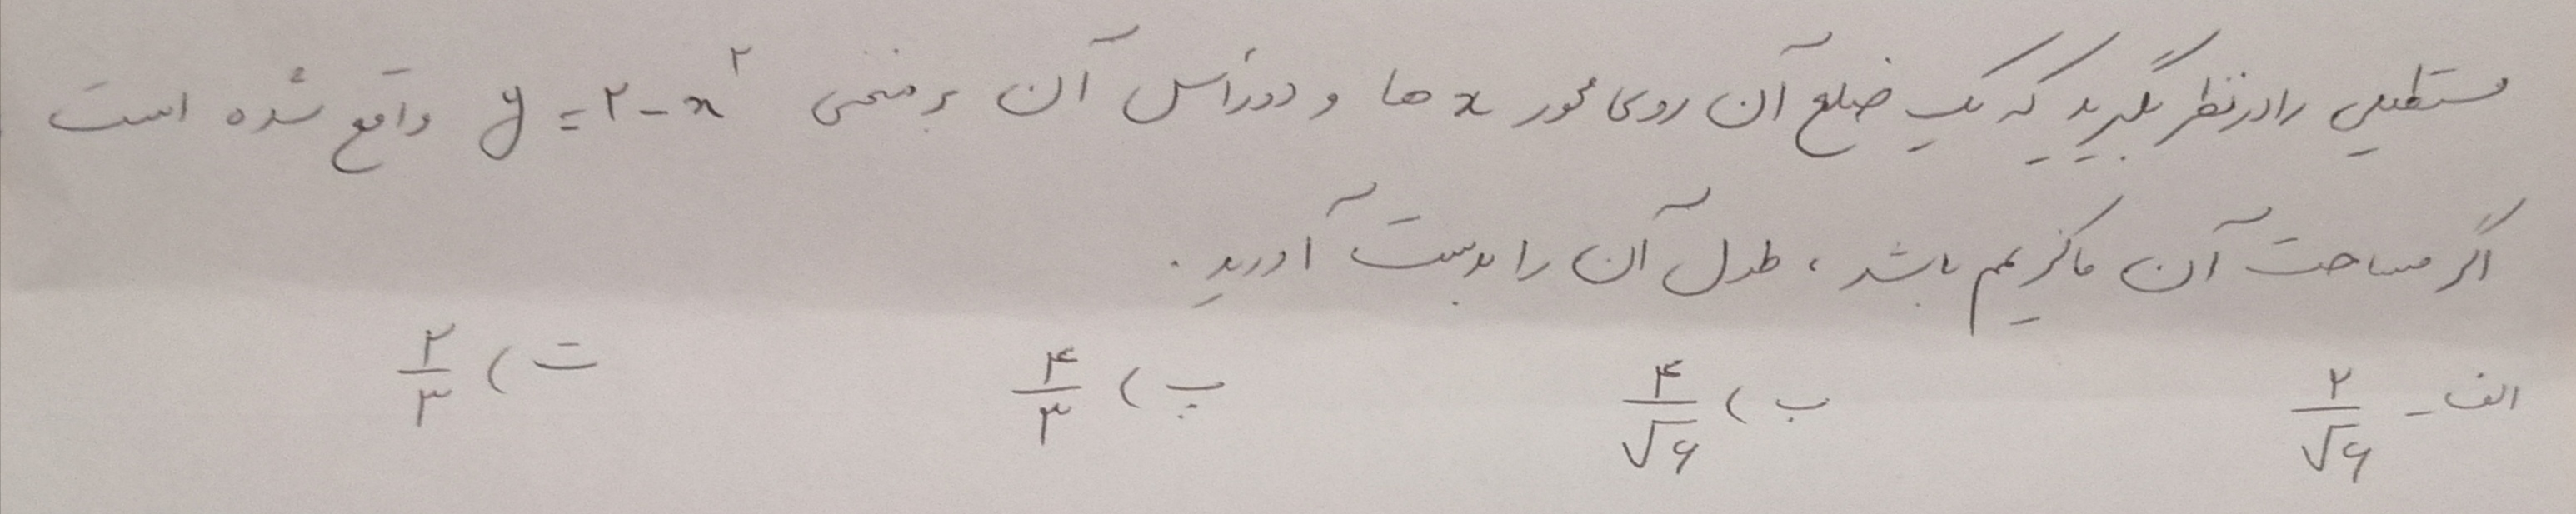 مستطیلی را در نظر بگیرید که یک ضلع آن روی محور x ها و دو رأس آن بر منحنی y = ۲ - x^۲ واقع شده است .
اگر مساحت آن ماکزیمم باشد ، طول آن را بدست آورید .
الف - ۲/√۶ ب ) ۴/√۶ پ ) ۴/۳ ت ) ۲/۳